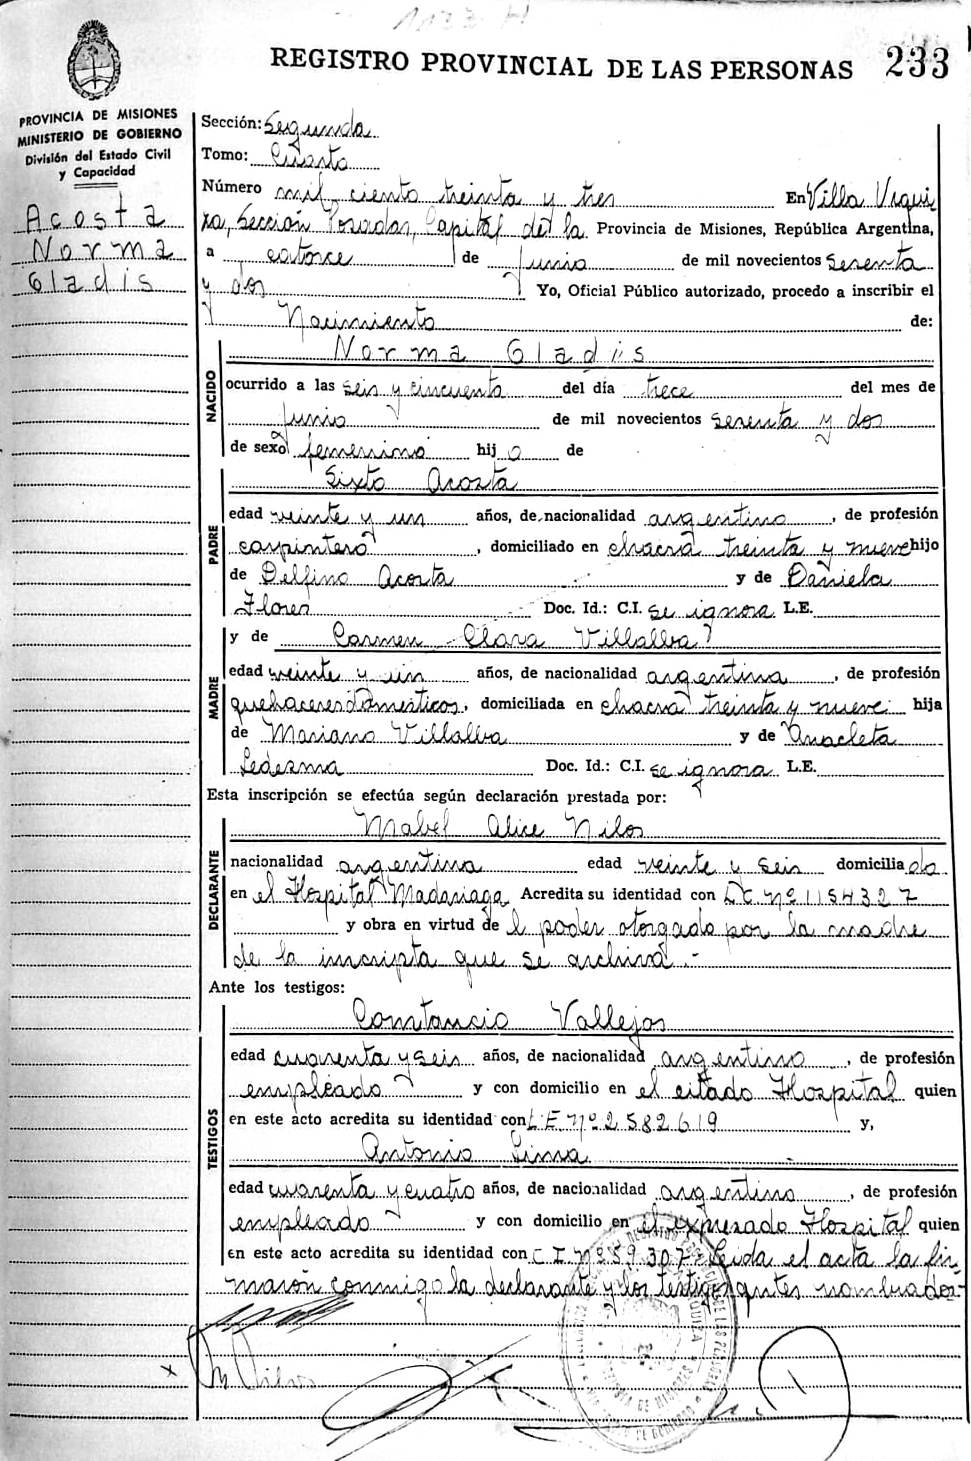 1133 H
REGISTRO PROVINCIAL DE LAS PERSONAS 233
PROVINCIA DE MISIONES
MINISTERIO DE GOBIERNO
División del Estado Civil
y Capacidad
Acosta
Norma
Gladis
Sección: Segunda
Tomo: Cuarto
Número mil ciento treinta y tres En Villa Urqui
za, Sección Posadas, Capital de la Provincia de Misiones, República Argentina,
a catorce de Junio de mil novecientos sesenta
y dos Yo, Oficial Público autorizado, procedo a inscribir el
Nacimiento de:
NACIDO
Norma Gladis
ocurrido a las seis y cincuenta del día trece del mes de
Junio de mil novecientos sesenta y dos
de sexo femenino hij a de
PADRE
Sixto Acosta
edad veinte y un años, de nacionalidad argentino, de profesión
carpintero, domiciliado en chacra treinta y nueve hijo
de Delfino Acosta y de Daniela
Flores Doc. Id.: C.I. se ignora L.E.
MADRE
y de Carmen Clara Villalba
edad veinte y un años, de nacionalidad argentina, de profesión
quehaceres domésticos, domiciliada en chacra treinta y nueve hija
de Mariano Villalba y de Anacleta
Ledesma Doc. Id.: C.I. se ignora L.E.
Esta inscripción se efectúa según declaración prestada por:
DECLARANTE
Mabel Alice Nilos
nacionalidad argentina edad veinte y seis domicilia da
en el Hospital Madariaga Acredita su identidad con LC Nº 1154327
y obra en virtud de l poder otorgado por la madre
de la inscripta que se archiva.-
Ante los testigos:
TESTIGOS
Constancio Vallejos
edad cuarenta y seis años, de nacionalidad argentino, de profesión
empleado y con domicilio en el citado Hospital quien
en este acto acredita su identidad con L E Nº 2582619 y,
Antonio Lima
edad cuarenta y cuatro años, de nacionalidad argentino, de profesión
empleado y con domicilio en el expresado Hospital quien
en este acto acredita su identidad con C I Nº 59.307. Leida el acta la fir
maron conmigo la declarante y los testigos antes nombrados-